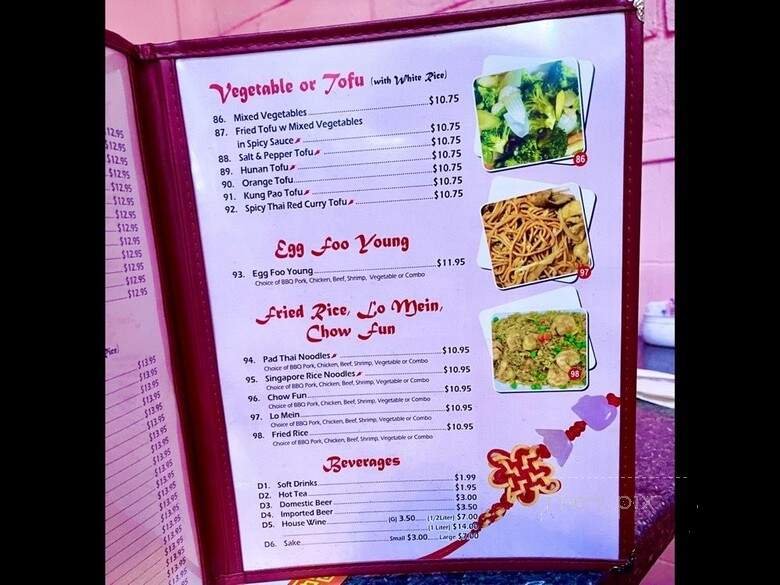 Vegetable or Tofu (with White Rice)
86. Mixed Vegetables $10.75
87. Fried Tofu w Mixed Vegetables
in Spicy Sauce $10.75
88. Salt & Pepper Tofu $10.75
89. Hunan Tofu $10.75
90. Orange Tofu $10.75
91. Kung Pao Tofu $10.75
92. Spicy Thai Red Curry Tofu $10.75
86
Egg Foo Young
93. Egg Foo Young $11.95
Choice of BBQ Pork, Chicken, Beef, Shrimp, Vegetable or Combo
97
Fried Rice, Lo Mein,
Chow Fun
94. Pad Thai Noodles $10.95
Choice of BBQ Pork, Chicken, Beef, Shrimp, Vegetable or Combo
95. Singapore Rice Noodles $10.95
Choice of BBQ Pork, Chicken, Beef, Shrimp, Vegetable or Combo
96. Chow Fun $10.95
Choice of BBQ Pork, Chicken, Beef, Shrimp, Vegetable or Combo
97. Lo Mein $10.95
Choice of BBQ Pork, Chicken, Beef, Shrimp, Vegetable or Combo
98. Fried Rice $10.95
Choice of BBQ Pork, Chicken, Beef, Shrimp, Vegetable or Combo
98
Beverages
D1. Soft Drinks $1.99
D2. Hot Tea $1.95
D3. Domestic Beer $3.00
D4. Imported Beer $3.50
D5. House Wine (G) 3.50 (1/2Liter) $7.00
(1 Liter) $14.00
D6. Sake Small $3.00 Large $7.00
12.95
$12.95
$12.95
$12.95
$12.95
$12.95
$12.95
$12.95
$12.95
$12.95
$12.95
$12.95
$12.95
Rice)
$13.95
$13.95
$13.95
$13.95
$13.95
$13.95
$13.95
$13.95
$13.95
$13.95
$13.95
$13.95
$13.95
$13.95
$13.95
$13.95
$13.95